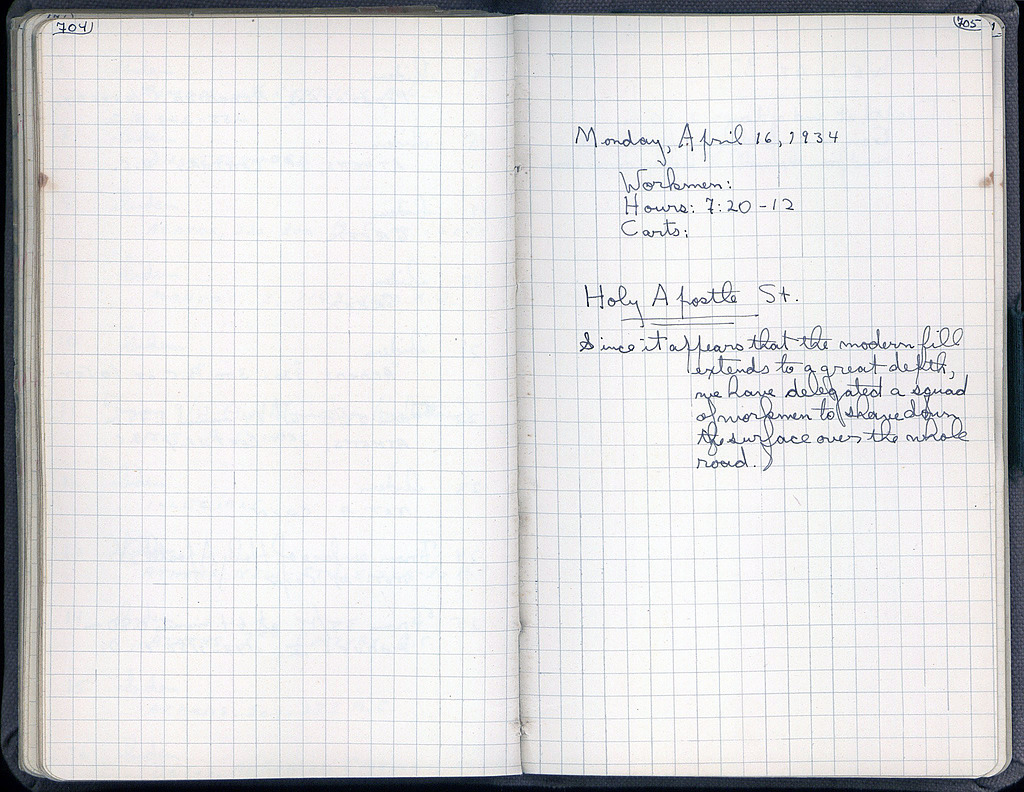 704
705
Monday, April 16, 1934
Workmen:
Hours: 7:20 - 12
Carts:
Holy Apostle St.
Since it appears that the modern fill
extends to a great depth,
we have delegated a squad
of workmen to shave down
the surface over the whole
road.